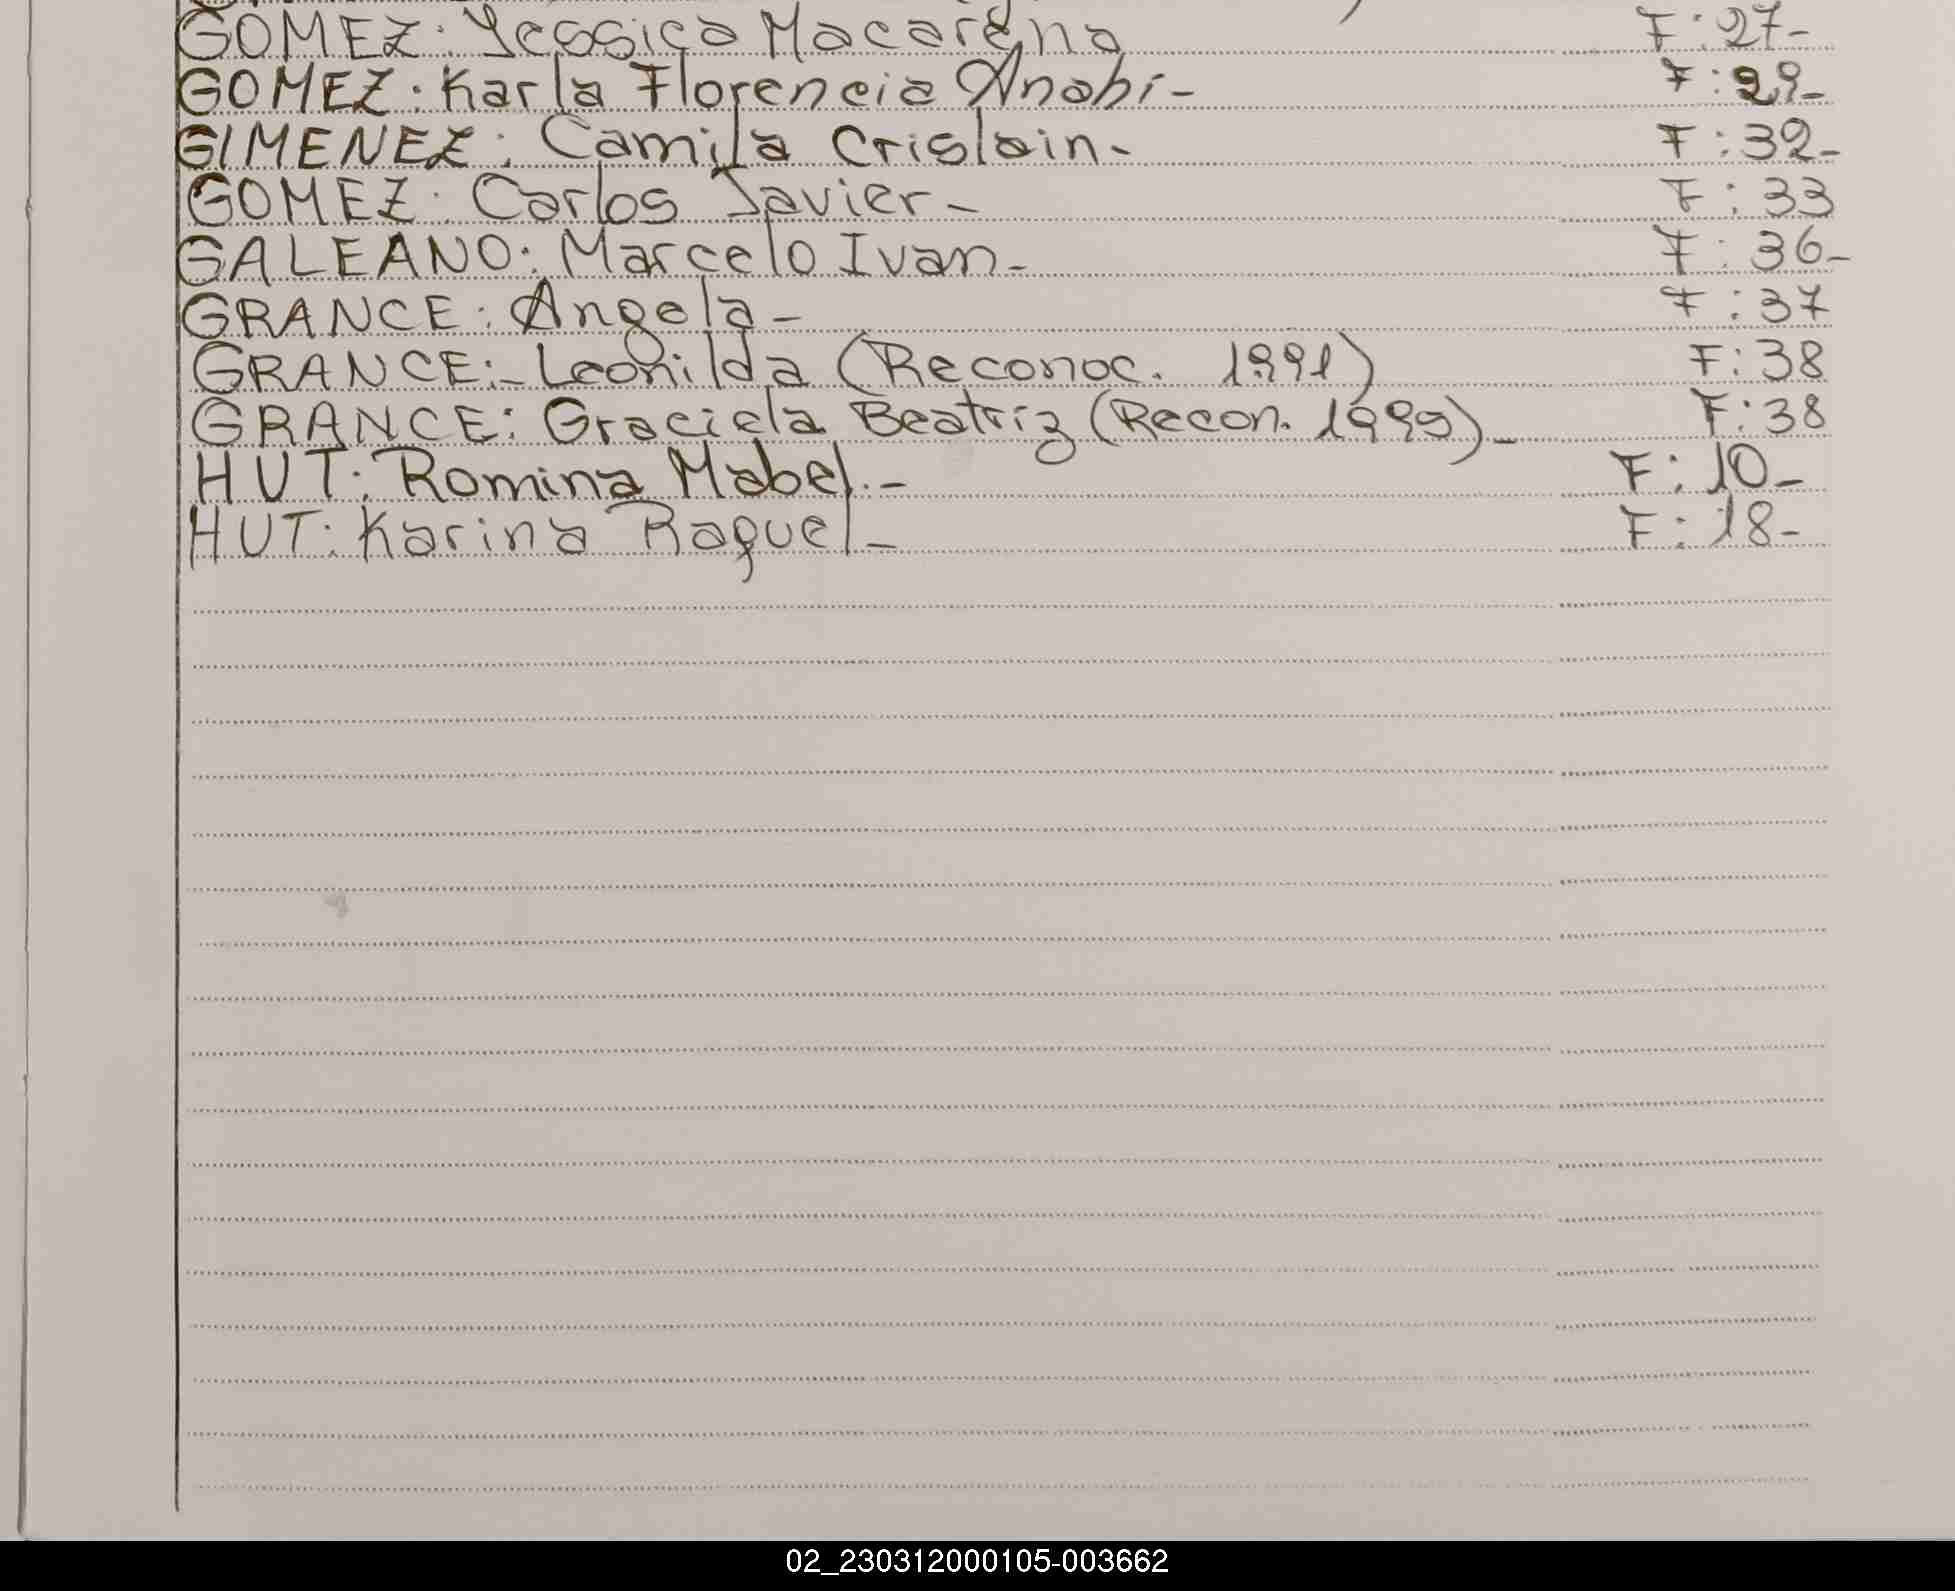 GOMEZ: Yessica Macarena F: 27-
GOMEZ: Karla Florencia Anahi- F: 29-
GIMENEZ: Camila Crislain- F: 32-
GOMEZ: Carlos Javier- F: 33
GALEANO: Marcelo Ivan- F: 36-
GRANCE: Angela- F: 37
GRANCE:- Leonilda (Reconoc. 1991) F: 38
GRANCE: Graciela Beatriz (Recon. 1999)- F: 38
HUT: Romina Mabel.- F: 10-
HUT: Karina Raquel- F: 18-
02_230312000105-003662